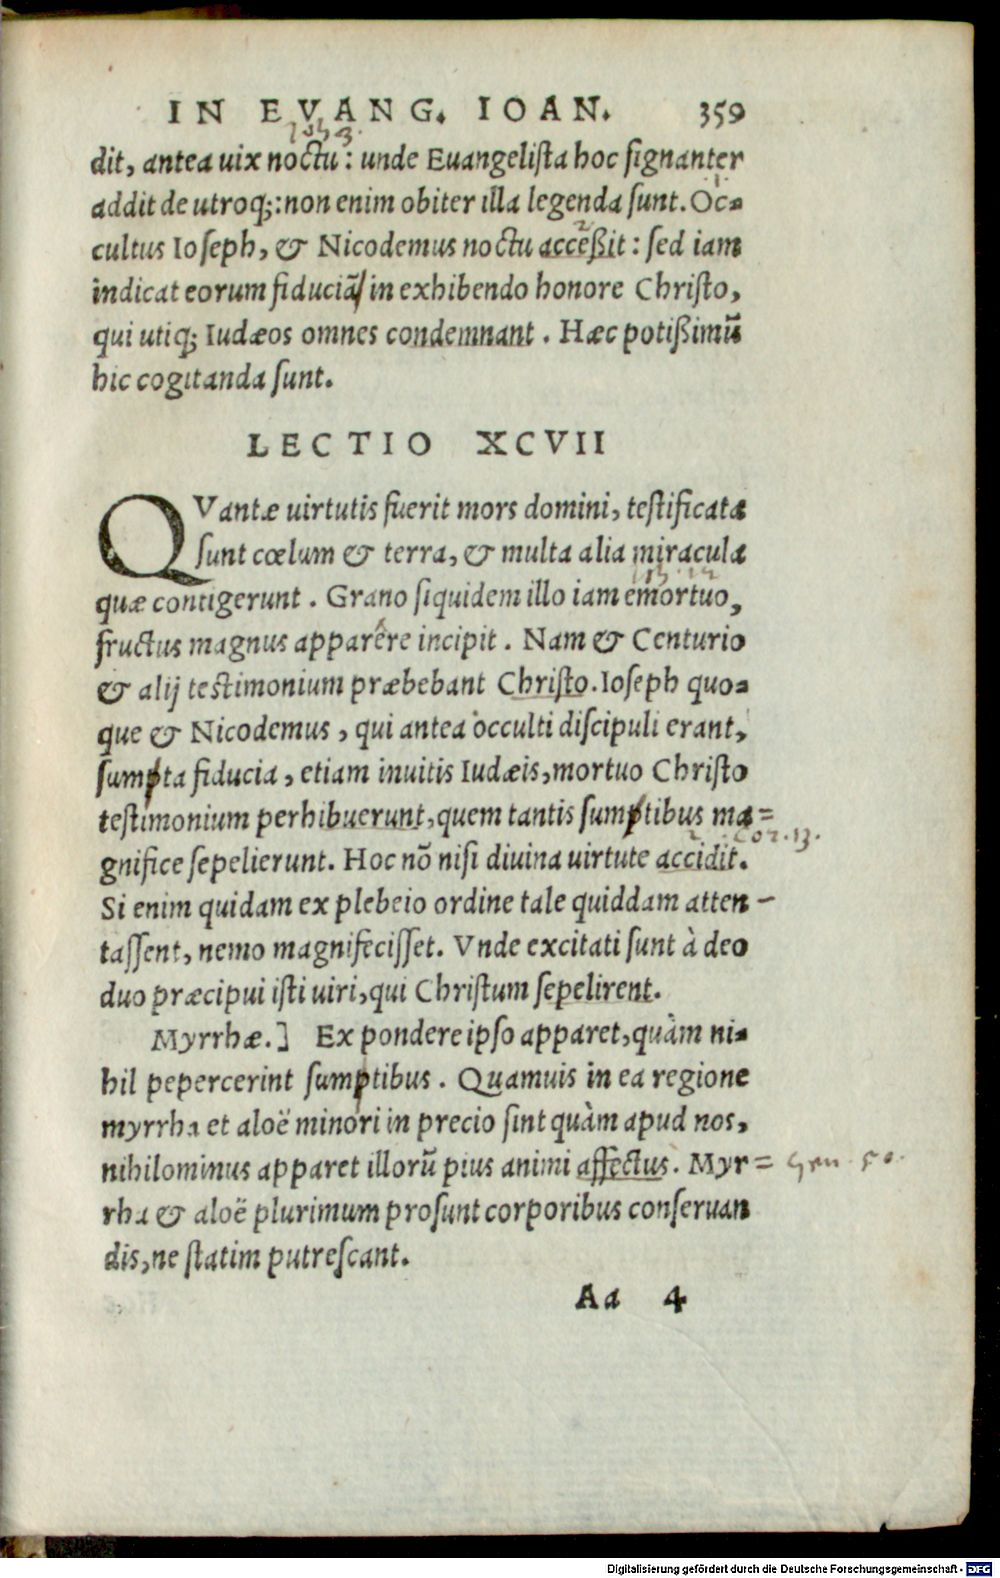 IN EVANG. IOAN. 359
Joh 3.
dit, antea uix noctu: unde Euangelista hoc signanter
1.
addit de utroq;: non enim obiter illa legenda sunt. Oc-
2
cultus Ioseph, & Nicodemus noctu acceßit: sed iam
indicat eorum fiduciã/ in exhibendo honore Christo,
qui utiq; Iudæos omnes condemnant. Hæc potißimũ
hic cogitanda sunt.
LECTIO XCVII
QVantæ uirtutis fuerit mors domini, testificata
sunt cœlum & terra, & multa alia miracula
Joh. 12
quæ contigerunt. Grano siquidem illo iam emortuo,
fructus magnus apparêre incipit. Nam & Centurio
& alij testimonium præbebant Christo. Ioseph quo-
que & Nicodemus, qui antea occulti discipuli erant,
sumpta fiducia, etiam inuitis Iudæis, mortuo Christo
testimonium perhibuerunt, quem tantis sumptibus ma=
2. Cor. 13.
gnifice sepelierunt. Hoc nõ nisi diuina uirtute accidit.
Si enim quidam ex plebeio ordine tale quiddam atten-
tassent, nemo magnifecisset. Vnde excitati sunt à deo
duo præcipui isti uiri, qui Christum sepelirent.
Myrrhæ.] Ex pondere ipso apparet, quàm ni-
hil pepercerint sumptibus. Quamuis in ea regione
myrrha et aloë minori in precio sint quàm apud nos,
nihilominus apparet illorũ pius animi affectus. Myr= Gen. 50.
rha & aloë plurimum prosunt corporibus conseruan
dis, ne statim putrescant.
Aa 4
Digitalisierung gefördert durch die Deutsche Forschungsgemeinschaft - DFG